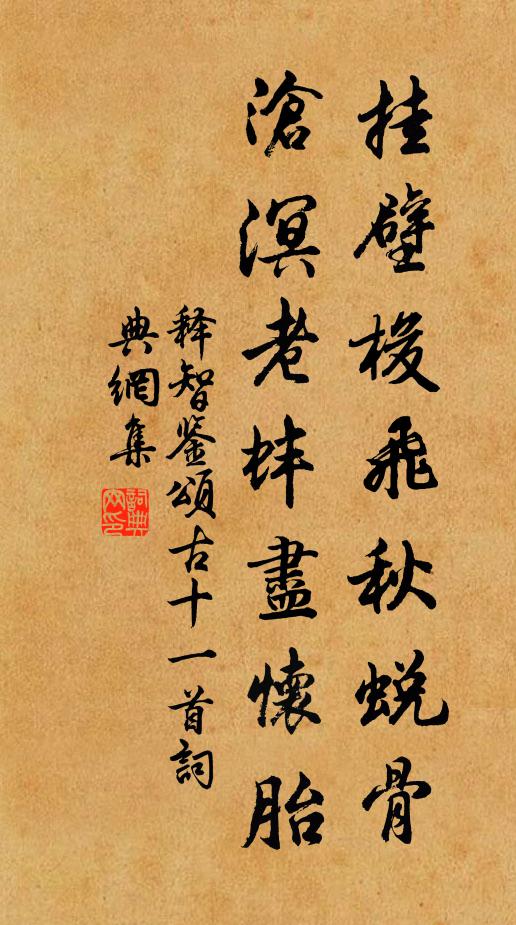 挂壁梭飛秋蜕骨
滄溟老蚌盡懷胎
释智鉴頌古十一首詞
典網集
詞典
网印